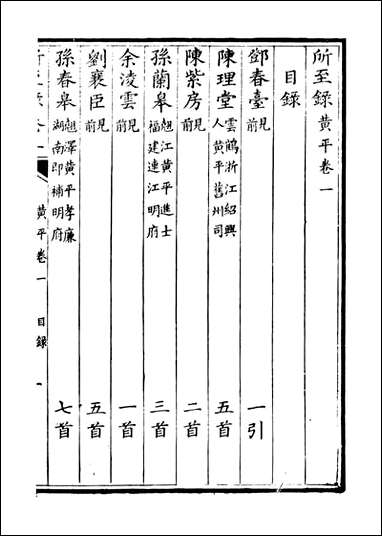 所至録黄平卷一
目録
鄧春臺 見前 一引
陳理堂 雲鶴浙江紹興人黄平舊州司 五首
陳紫房 見前 二首
孫蘭皋 翹江黄平進士福建連江明府 三首
余淩雲 見前 一首
劉襄臣 見前 五首
孫春皋 翹澤黄平孝廉湖南即補明府 七首
黄平卷一 目録 一